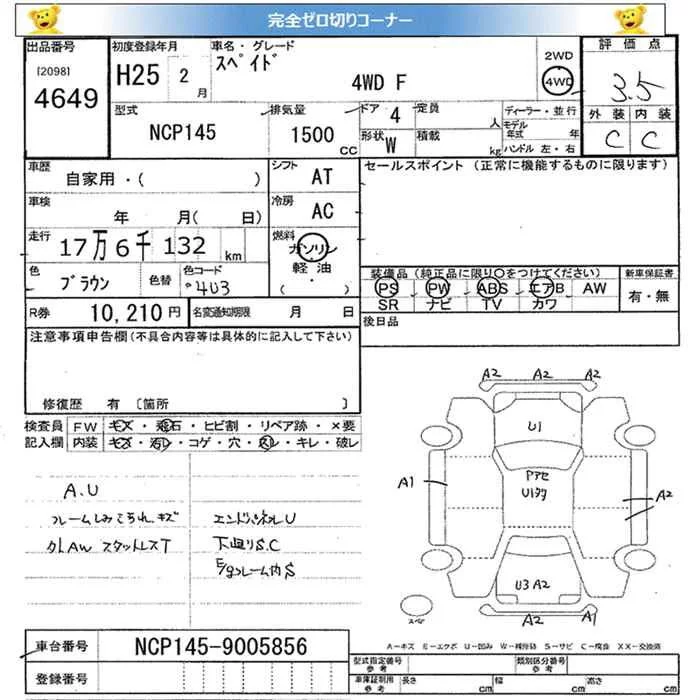 完全ゼロ切りコーナー
出品番号
[2098]
4649
初度登録年月
H25 2 月
車名・グレード
スペイド
4WD F
2WD
4WD
評価点
3.5
外装 内装
C C
型式
NCP145
排気量
1500 cc
ドア 4
形状 W
定員 人
積載 kg
ディーラー・並行
モデル年式 年
ハンドル 左・右
車歴
自家用・( )
シフト AT
車検
年 月( 日)
冷房 AC
走行
17万6千132 km
燃料
ガソリン
軽油
( )
色 ブラウン 色替
色コード 4U3
R券 10,210 円
名変通知期限 月 日
セールスポイント (正常に機能するものに限ります)
装備品 (純正品に限り○をつけてください)
PS PW ABS エアB AW
SR ナビ TV カワ
新車保証書
有・無
後日品
注意事項申告欄(不具合内容等は具体的に記入して下さい)
修復歴 有 [箇所 ]
検査員記入欄
FW キズ・飛石・ヒビ割・リペア跡・×要
内装 キズ・汚レ・コゲ・穴・スレ・キレ・破レ
A.U
フレームしみこられ キズ
カレAW スタットレスT
エンドパネルU
下廻りS.C
E/gフレーム内S
A2 A2 A2
U1
A1
Pアセ
U1タタ
A2
U3 A2
A2 A1
スペア
A=キズ E=エクボ U=凹み W=補修跡 S=サビ C=腐食 XX=交換済
車台番号 NCP145-9005856
登録番号
型式指定番号 参考
類別区分番号 参考
車庫証明用 参考
長さ cm 幅 cm 高さ cm